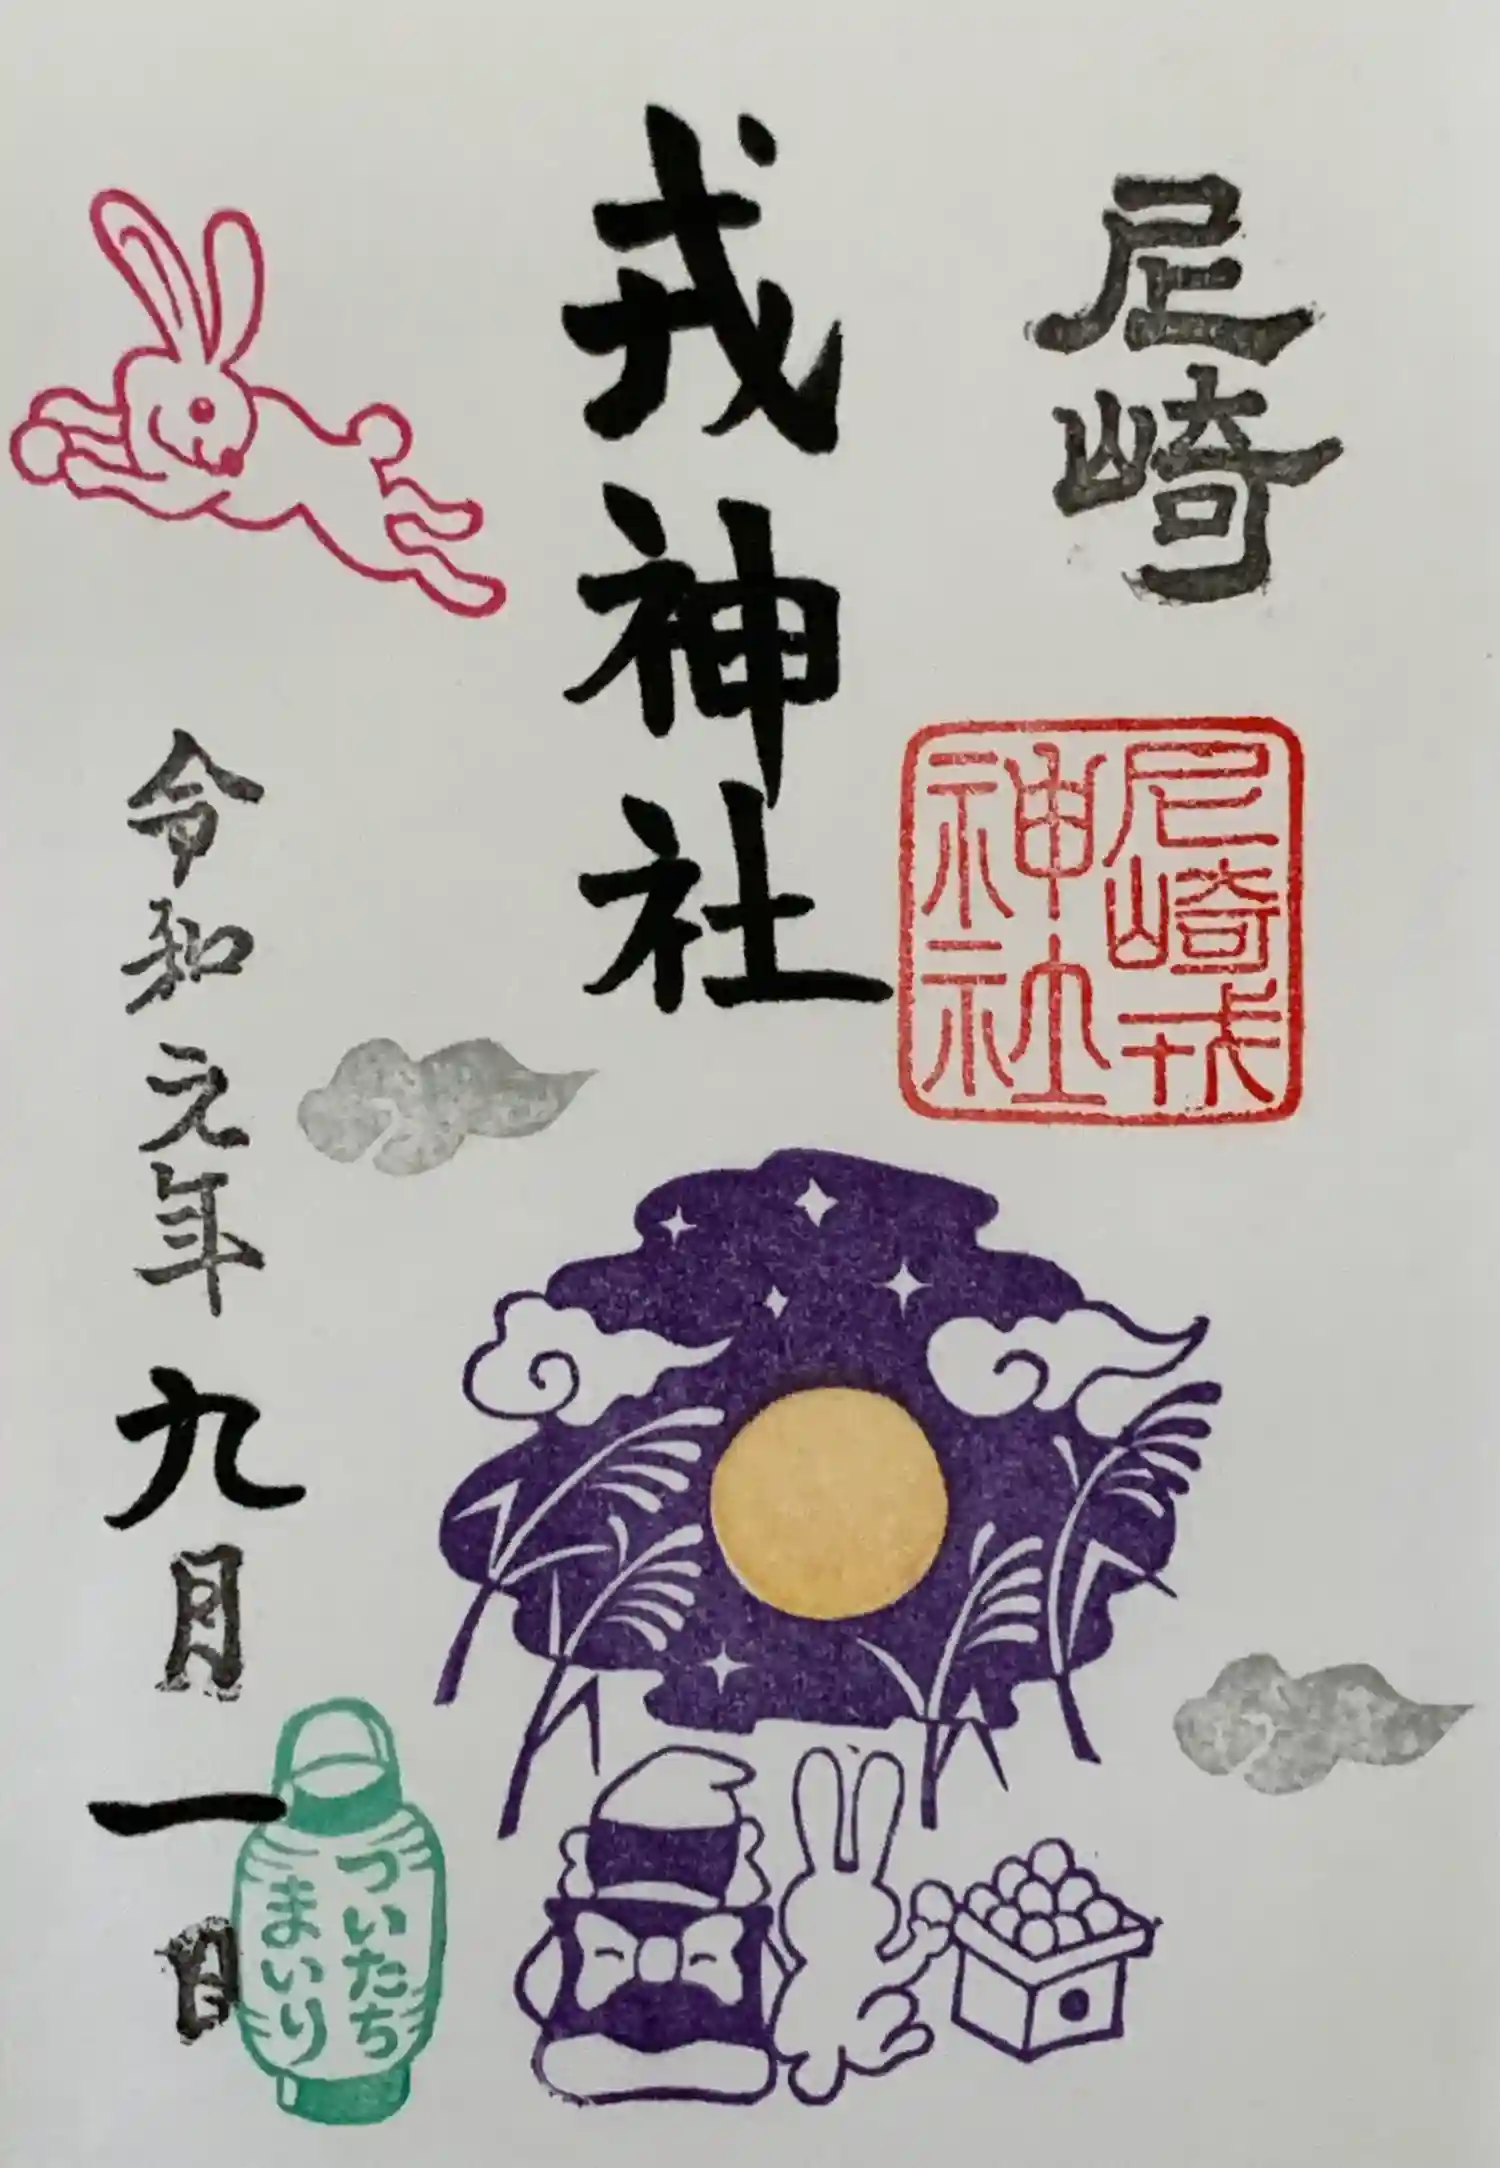 尼崎
尼崎戎
神社
戎神社
令和元年九月一日
ついたち
まいり